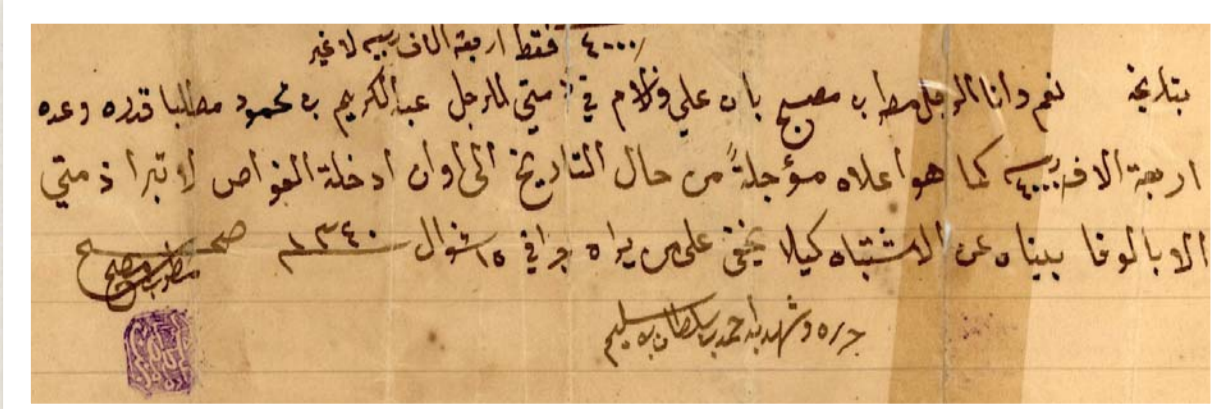 ٤٠٠٠/ فقط اربعة الاف ربيه لا غير
بتاريخه نعم وانا الرجل مطر بن مصبح بان علي ولازم في ذمتي للرجل عبدالكريم بن محمود مطلبا قدره وعده
اربعة الاف ربيه ٤٠٠٠ كما هو اعلاه مؤجلةً من حال التاريخ الى اوان ادخلة الغواص لا تبرا ذمتي
الا بالوفا بيناه عن الاشتباه كيلا يخفى على من يراه جرا في ١٥ شوال ١٣٤٠ صح
مطر بن مصبح
حرره وشهد به احمد بن سلطان بن سليم